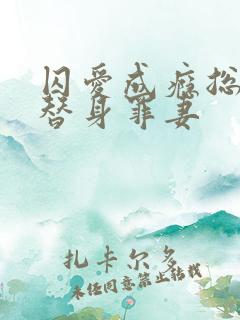 囚愛成癮總
替身罪妻
扎卡尔多
未经同意禁止转载